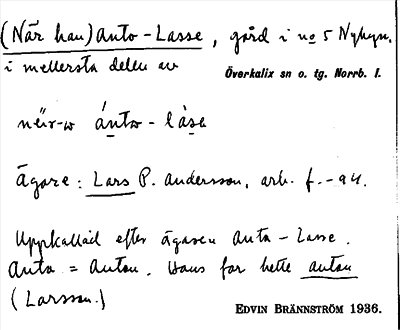 (När hau) Anto-Lasse, gård i no 5 Nybyn.
i mellersta delen av
Överkalix sn o. tg. Norrb. l.
näir-w ántw-låsa
Ägare: Lars P. Andersson, arb. f. -94.
Uppkallad efter ägaren Anta-Lasse.
Anta = Anton. Hans far hette Anton
(Larsson.)
EDVIN BRÄNNSTRÖM 1936.